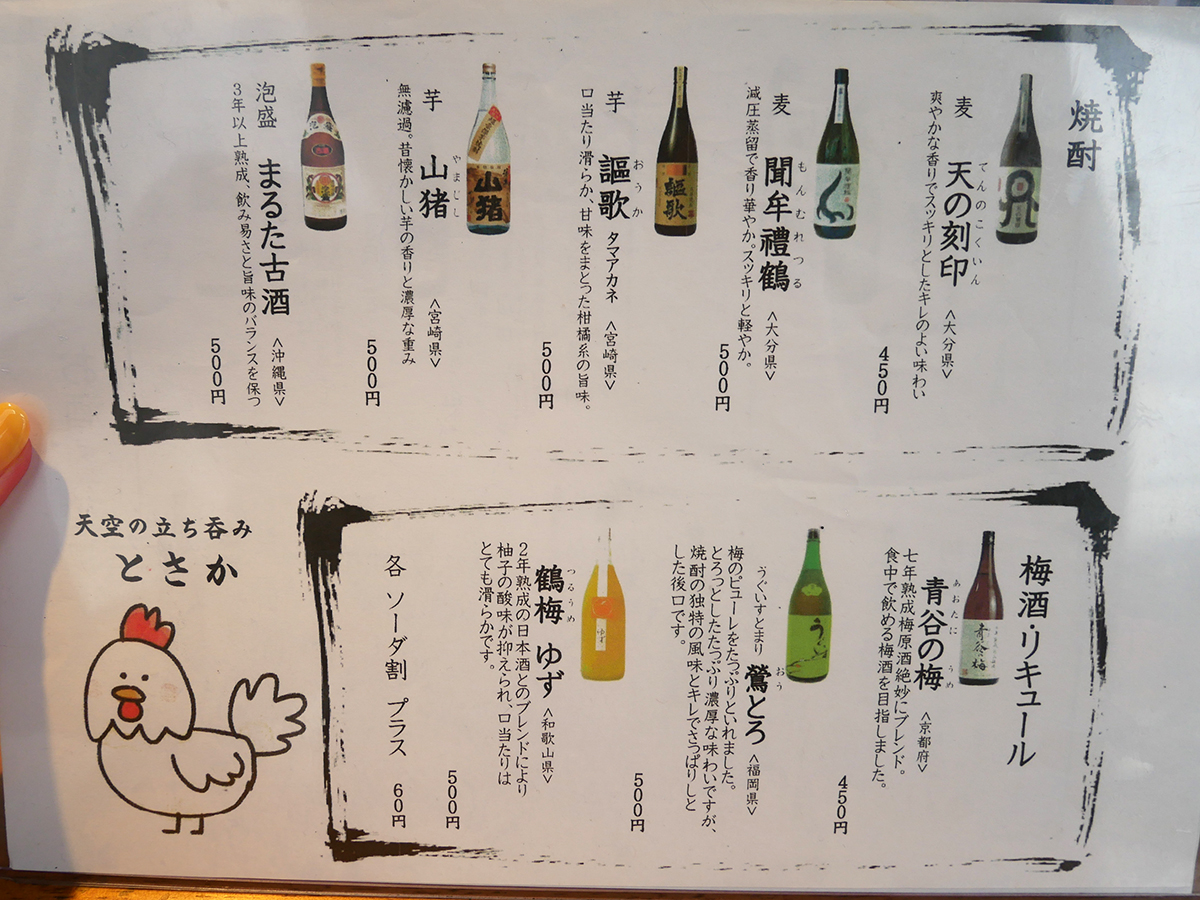 焼酎
麦 天の刻印 <大分県>
てんのこくいん
爽やかな香りでスッキリとしたキレのよい味わい
450円
麦 聞牟禮鶴 <大分県>
もんむれつる
減圧蒸留で香り華やか。スッキリと軽やか。
500円
芋 謳歌 タマアカネ <宮崎県>
おうか
口当たり滑らか、甘味をまとった柑橘系の旨味。
500円
謳歌
芋 山猪 <宮崎県>
やまじし
無濾過。昔懐かしい芋の香りと濃厚な重み
500円
山猪
泡盛 まるた古酒 <沖縄県>
3年以上熟成、飲み易さと旨味のバランスを保つ
500円
梅酒・リキュール
青谷の梅 <京都府>
あおたに うめ
七年熟成梅原酒絶妙にブレンド。
食中で飲める梅酒を目指しました。
450円
青谷梅
うぐいすとまり 鶯とろ <福岡県>
おう
梅のピューレをたっぷりといれました。
とろっとしたたっぷり濃厚な味わいですが、
焼酎の独特の風味とキレでさっぱりと
した後口です。
500円
鶴梅 ゆず <和歌山県>
つるうめ
2年熟成の日本酒とのブレンドにより
柚子の酸味が抑えられ、口当たりは
とても滑らかです。
500円
ゆず
各 ソーダ割 プラス 60円
天空の立ち呑み
とさか